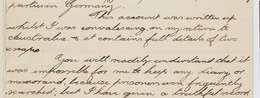 particular Germany.
This account was written up
whilst I was convalescing, on my return to
Australia & it contains full details of two
escapes.
You will readily understand that it
was impossible for me to keep any diary or
memoranda because prisoners were frequently
searched, but I have given a truthful record